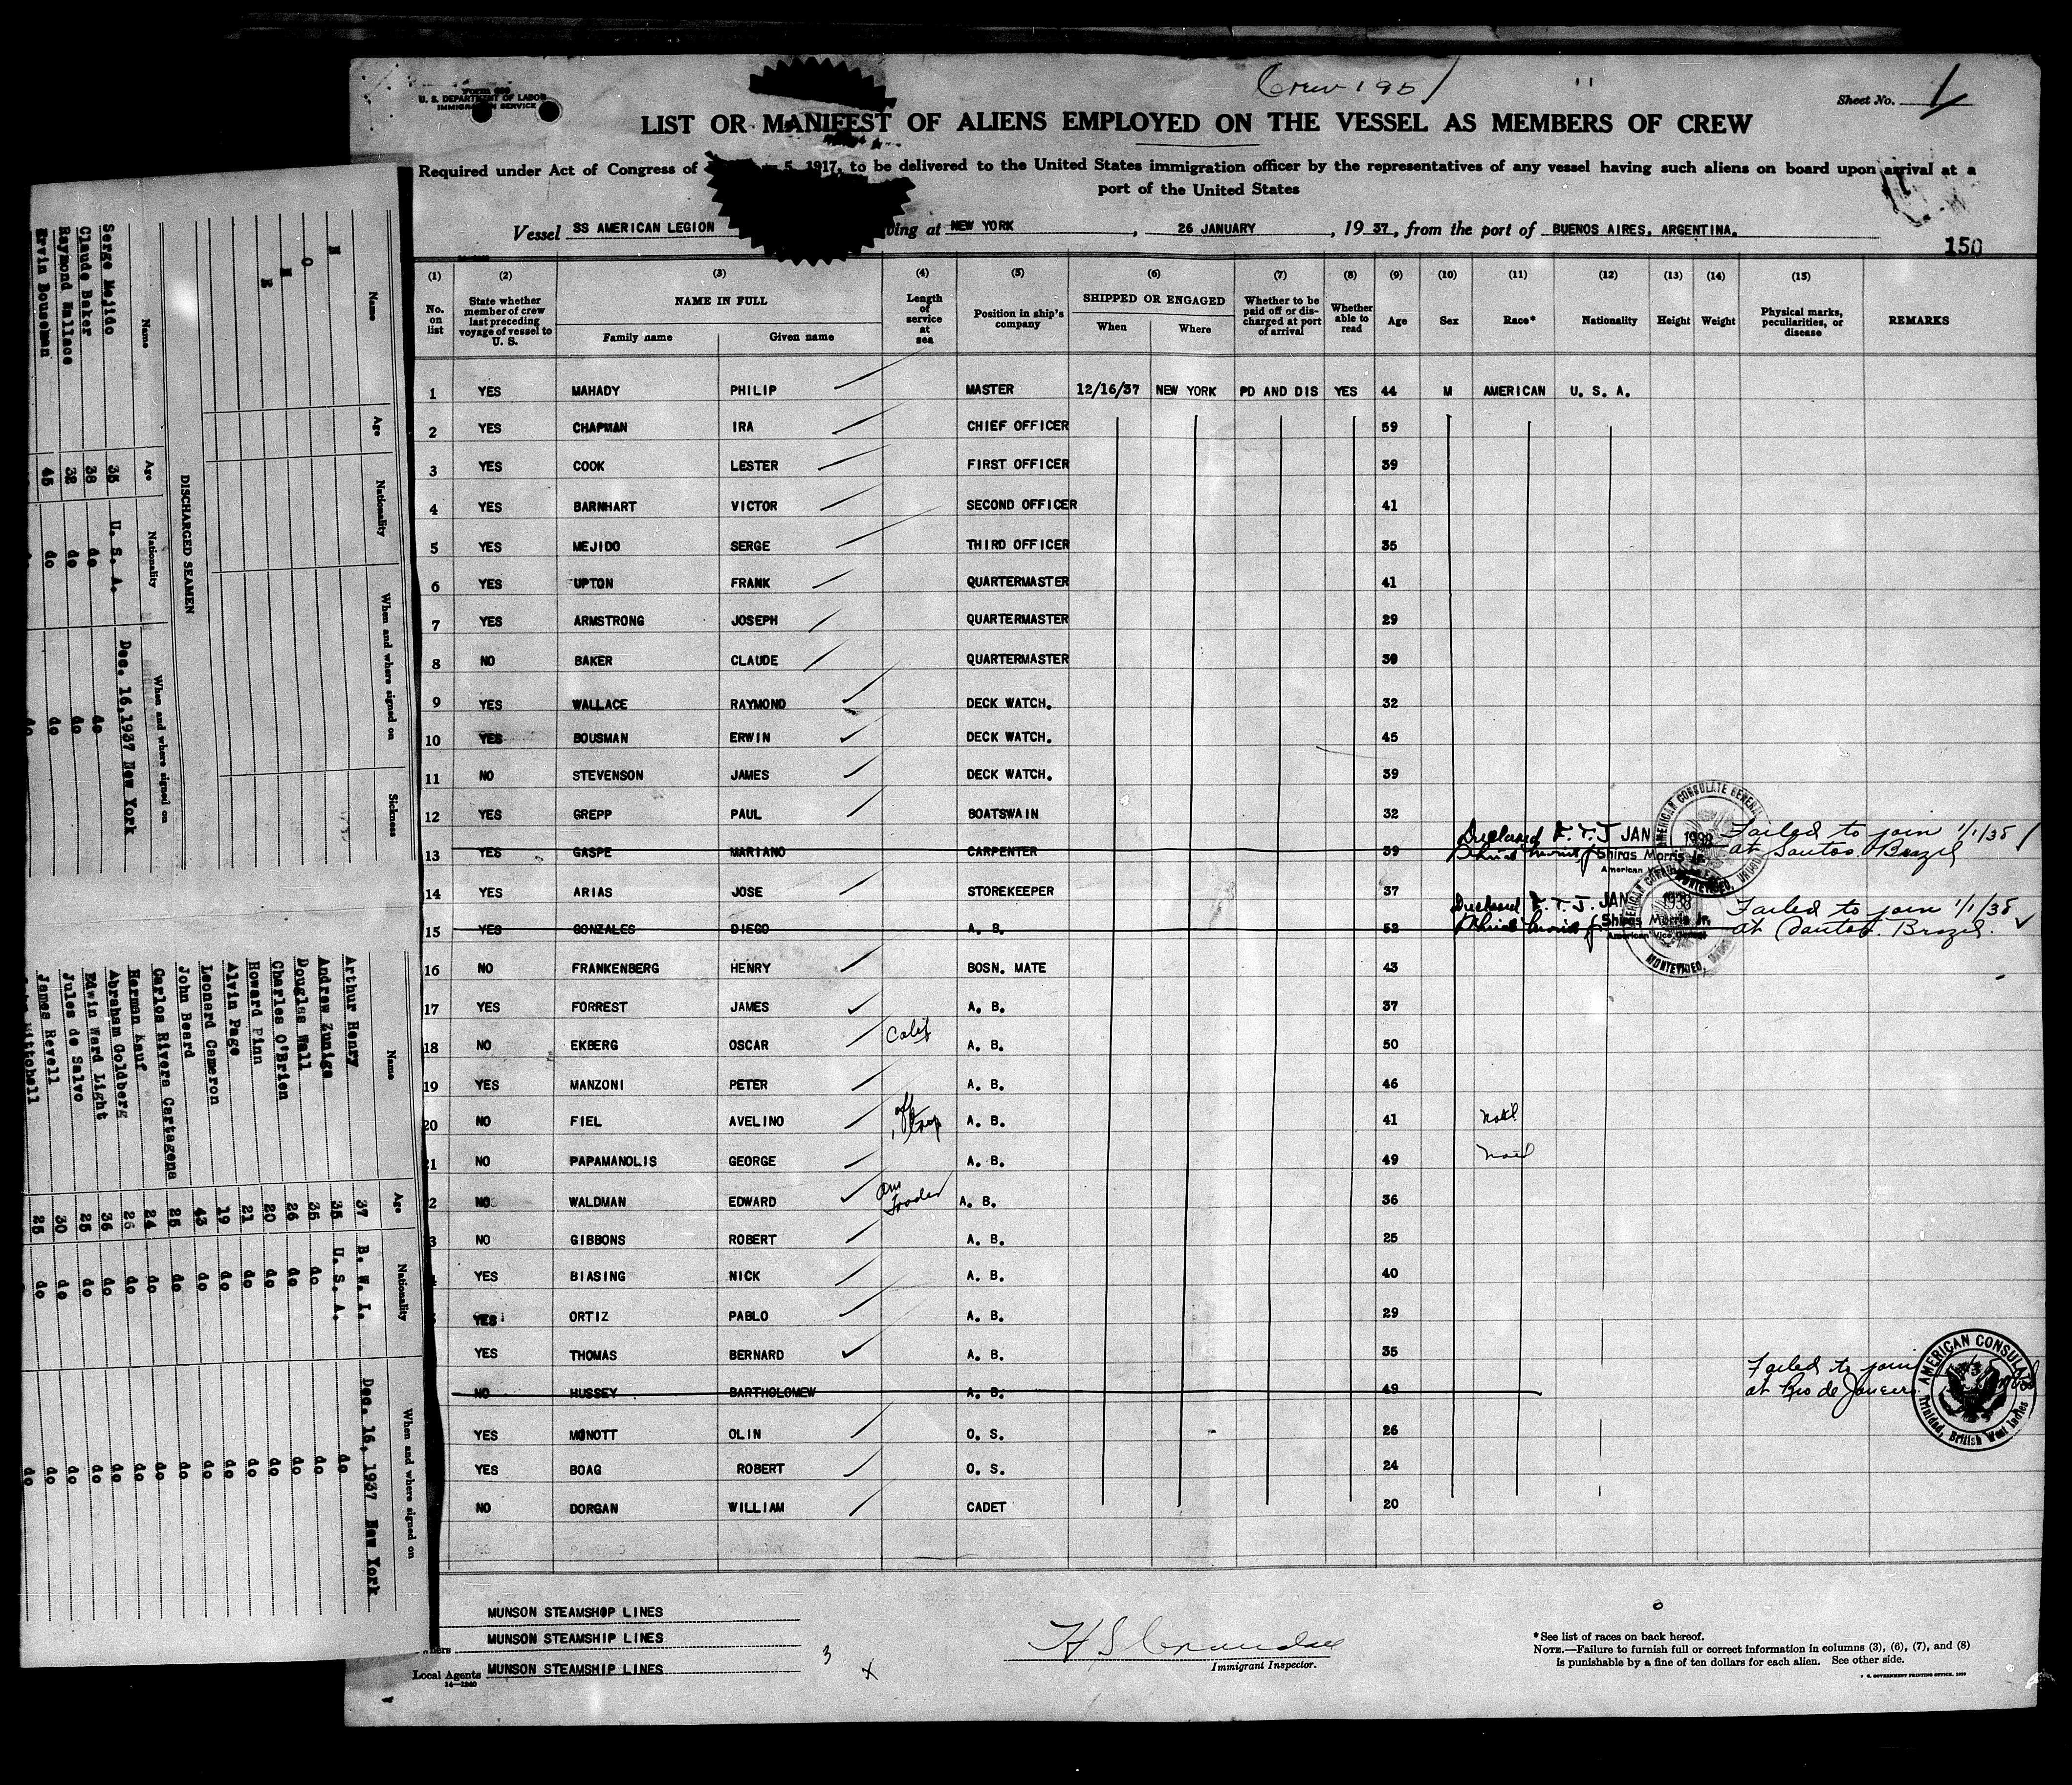 Form 689
U. S. DEPARTMENT OF LABOR
IMMIGRATION SERVICE
Crew 195
Sheet No. 1
LIST OR MANIFEST OF ALIENS EMPLOYED ON THE VESSEL AS MEMBERS OF CREW
Required under Act of Congress of 5, 1917, to be delivered to the United States immigration officer by the representatives of any vessel having such aliens on board upon arrival at a
port of the United States
Vessel SS AMERICAN LEGION ving at NEW YORK, 26 JANUARY, 19 37, from the port of BUENOS AIRES, ARGENTINA.
150
(1) (2) (3) (4) (5) (6) (7) (8) (9) (10) (11) (12) (13) (14) (15)
No. on list
State whether member of crew last preceding voyage of vessel to U. S.
NAME IN FULL
Family name Given name
Length of service at sea
Position in ship's company
SHIPPED OR ENGAGED
When Where
Whether to be paid off or discharged at port of arrival
Whether able to read
Age Sex Race* Nationality Height Weight
Physical marks, peculiarities, or disease
REMARKS
1 YES MAHADY PHILIP MASTER 12/16/37 NEW YORK PD AND DIS YES 44 M AMERICAN U. S. A.
2 YES CHAPMAN IRA CHIEF OFFICER 59
3 YES COOK LESTER FIRST OFFICER 39
4 YES BARNHART VICTOR SECOND OFFICER 41
5 YES MEJIDO SERGE THIRD OFFICER 35
6 YES UPTON FRANK QUARTERMASTER 41
7 YES ARMSTRONG JOSEPH QUARTERMASTER 29
8 NO BAKER CLAUDE QUARTERMASTER 38
9 YES WALLACE RAYMOND DECK WATCH. 32
10 YES BOUSMAN ERWIN DECK WATCH. 45
11 NO STEVENSON JAMES DECK WATCH. 39
12 YES GREPP PAUL BOATSWAIN 32
13 YES GASPE MARIANO CARPENTER 39 F. T. J JAN 1938 Failed to join 1/1/38
Shiras Morris Jr. at Santos. Brazil
14 YES ARIAS JOSE STOREKEEPER 37
15 YES GONZALES DIEGO A. B. 52 F. T. J. JAN 1938 Failed to join 1/1/38
Shiras Morris Jr. at Santos. Brazil.
American Vice Consul
AMERICAN CONSULATE GENERAL
MONTEVIDEO, URUGUAY
16 NO FRANKENBERG HENRY BOSN. MATE 43
17 YES FORREST JAMES A. B. 37
18 NO EKBERG OSCAR Calif A. B. 50
19 YES MANZONI PETER A. B. 46
20 NO FIEL AVELINO A. B. 41 Natl
21 NO PAPAMANOLIS GEORGE A. B. 49 Natl
2 NO WALDMAN EDWARD A. B. 36
3 NO GIBBONS ROBERT A. B. 25
YES BIASING NICK A. B. 40
YES ORTIZ PABLO A. B. 29
YES THOMAS BERNARD A. B. 35
NO HUSSEY BARTHOLOMEW A. B. 49 Failed to join
at Rio de Janeiro
AMERICAN CONSULATE
Trinidad, British West Indies
YES MONOTT OLIN O. S. 26
YES BOAG ROBERT O. S. 24
NO DORGAN WILLIAM CADET 20
MUNSON STEAMSHOP LINES
MUNSON STEAMSHIP LINES
Local Agents MUNSON STEAMSHIP LINES
14—1240
3
Immigrant Inspector.
*See list of races on back hereof.
NOTE.—Failure to furnish full or correct information in columns (3), (6), (7), and (8)
is punishable by a fine of ten dollars for each alien. See other side.
U. S. GOVERNMENT PRINTING OFFICE
Name Age Nationality When and where signed on Sickness
N O N E
DISCHARGED SEAMEN
Name Age Nationality When and where signed on
Serge Mejido 35 U. S. A. Dec. 16,1937 New York
Claude Baker 38 do do
Raymond Wallace 32 do do
Ervin Bouseman 45 do do
Name Age Nationality When and where signed on
Arthur Henry 37 B. W. I. Dec. 16, 1937 New York
Andrew Zuniga 35 U. S. A. do
Douglas Wall 35 do do
Charles O'Brien 26 do do
Howard Pinn 20 do do
Alvin Page 21 do do
Leonard Cameron 19 do do
John Beard 43 do do
Carlos Rivera Cartagena 25 do do
Herman Kauf 24 do do
Abraham Goldberg 26 do do
Edwin Ward Light 36 do do
Jules de Salvo 25 do do
James Revell 30 do do
Mittchell 25 do do